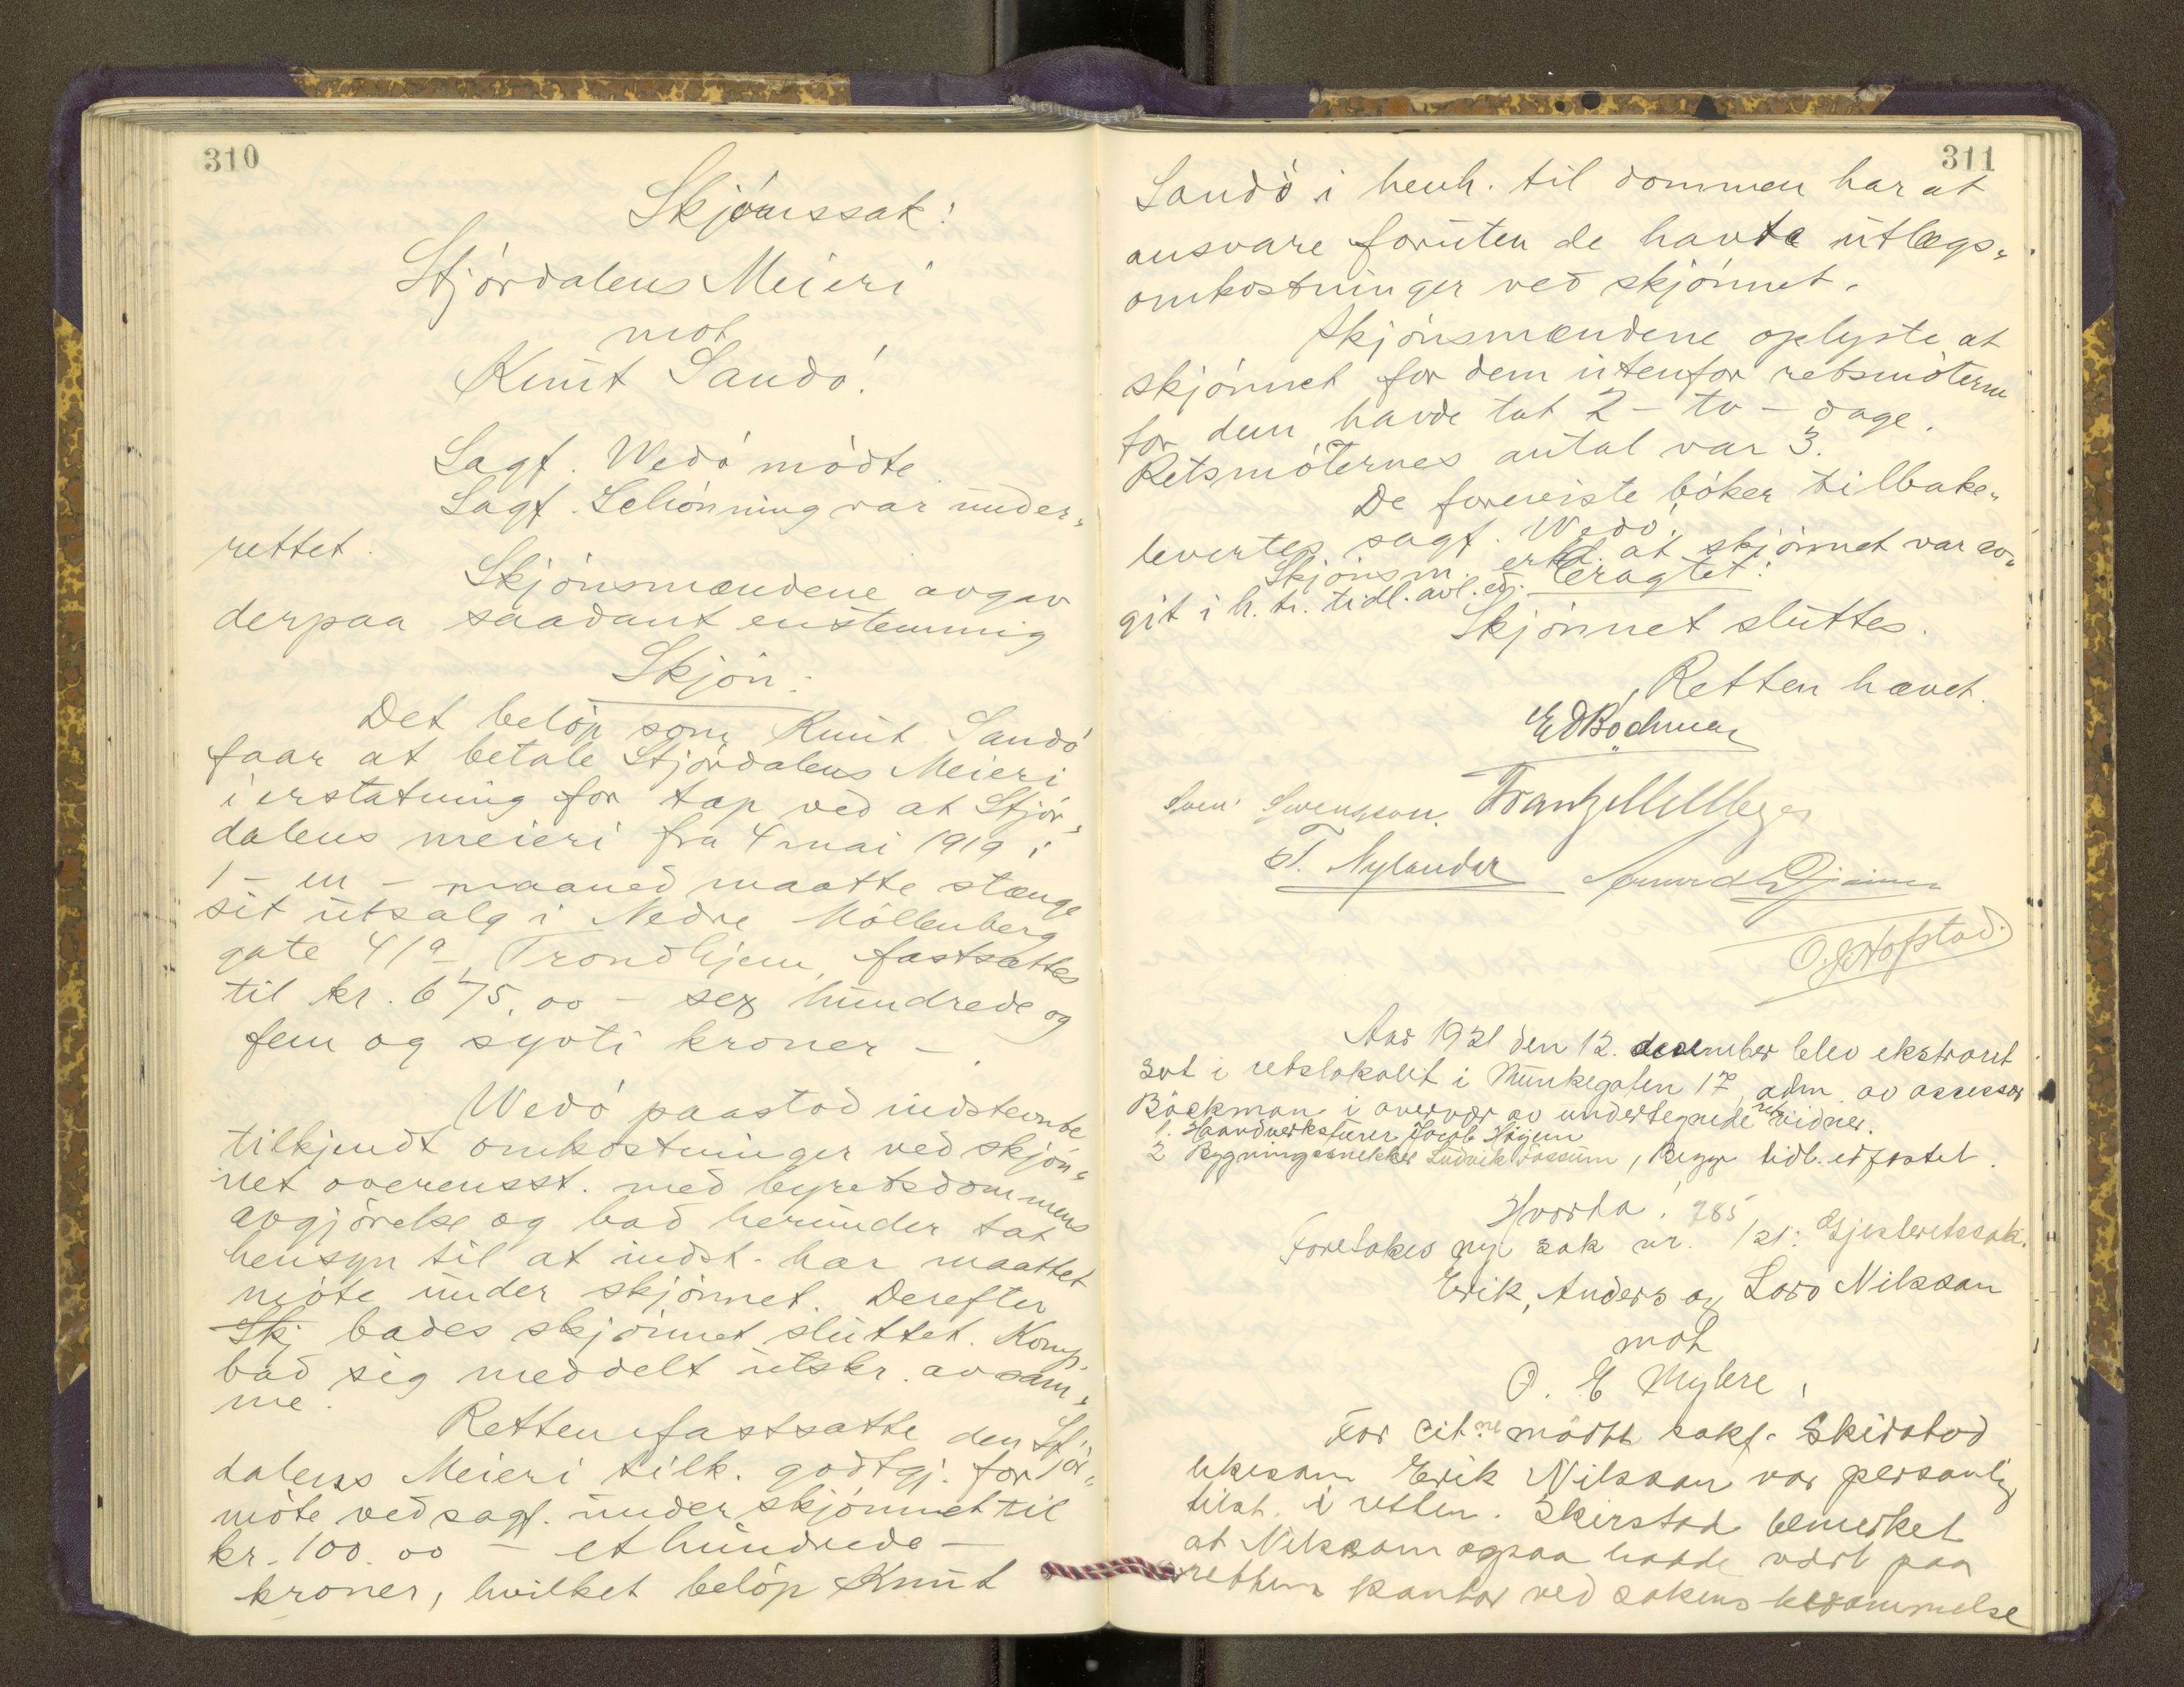 310
Skjønssak:
Stjørdalens Meieri
mot
Knut Sandö.
Sagf. Wedö mödte
Sagf. Schönning var under-
rettet.
Skjönsmændene avgav
derpaa saadant enstemmig
Skjön:
Det belöp som Knut Sandö
faar at betale Stjördalens Meieri
i erstatning for tap ved at Stjör-
dalens meieri fra 4 mai 1919 i
1 - en - maaned maatte stænge
sit utsalg i Nedre Möllenberg
gate 41a, Trondhjem, fastsættes
til kr. 675,00 - sex hundrede og
fem og sytti kroner -.
Wedö paastod indstevnte
tilkjendt omkostninger ved skjön-
net overensst. med byretsdommens
avgjörelse og bad herunder tat
hensyn til at indst. har maattet
möte under skjönnet. Derefter
Skj bades skjönnet sluttet. Komp.
bad sig meddelt utskr. av sam-
me.
Retten fastsatte den Stjör-
dalens Meieri tilk. godtgj. for
möte ved sagf. under skjönnet til
kr. 100.00 - et hundrede -
kroner, hvilket belöp Knut
311
Sandö i henh. til dommen har at
ansvare foruten de havte utlægs-
omkostninger ved skjönnet.
Skjönsmændene oplyste at
skjönnet for dem utenfor retsmöterne
for dem havde tat 2 - to - dage.
Retsmöternes antal var 3.
De foreviste böker tilbake-
levertes sagf. Wedö.
Skjönsm. erkl. at skjönnet var av-
git i h. t. tidl. avl. ed. Eragtet:
Skjönnet sluttes.
Retten hævet.
Ed Bøckman
Sven Svensson. Frantz Mellbye
T. Nylander
O. J. Hofstad.
Aar 1921 den 12. december blev ekstraret
sat i retslokalet i Munkegaten 17, adm. av assessor
Böckman i overvær av undertegnede retsvidner.
1. Haandverksfører Jacob Höijem
2 Bygningssnekker Ludvik Fossum, Begge tidl. edfæstet.
Hvorda!
Foretokes ny sak nr. 785/21: Gjesteretssak.
Erik, Anders og Lars Nilsson
mot
O. E Myhre,
For cit.ne mödte sakf. Skirstad
likesom Erik Nilsson var personlig
tilst. i retten. Skirstad bemerket
at Nilsson ogsaa hadde vært paa
rettens kontor ved sakens berammelse